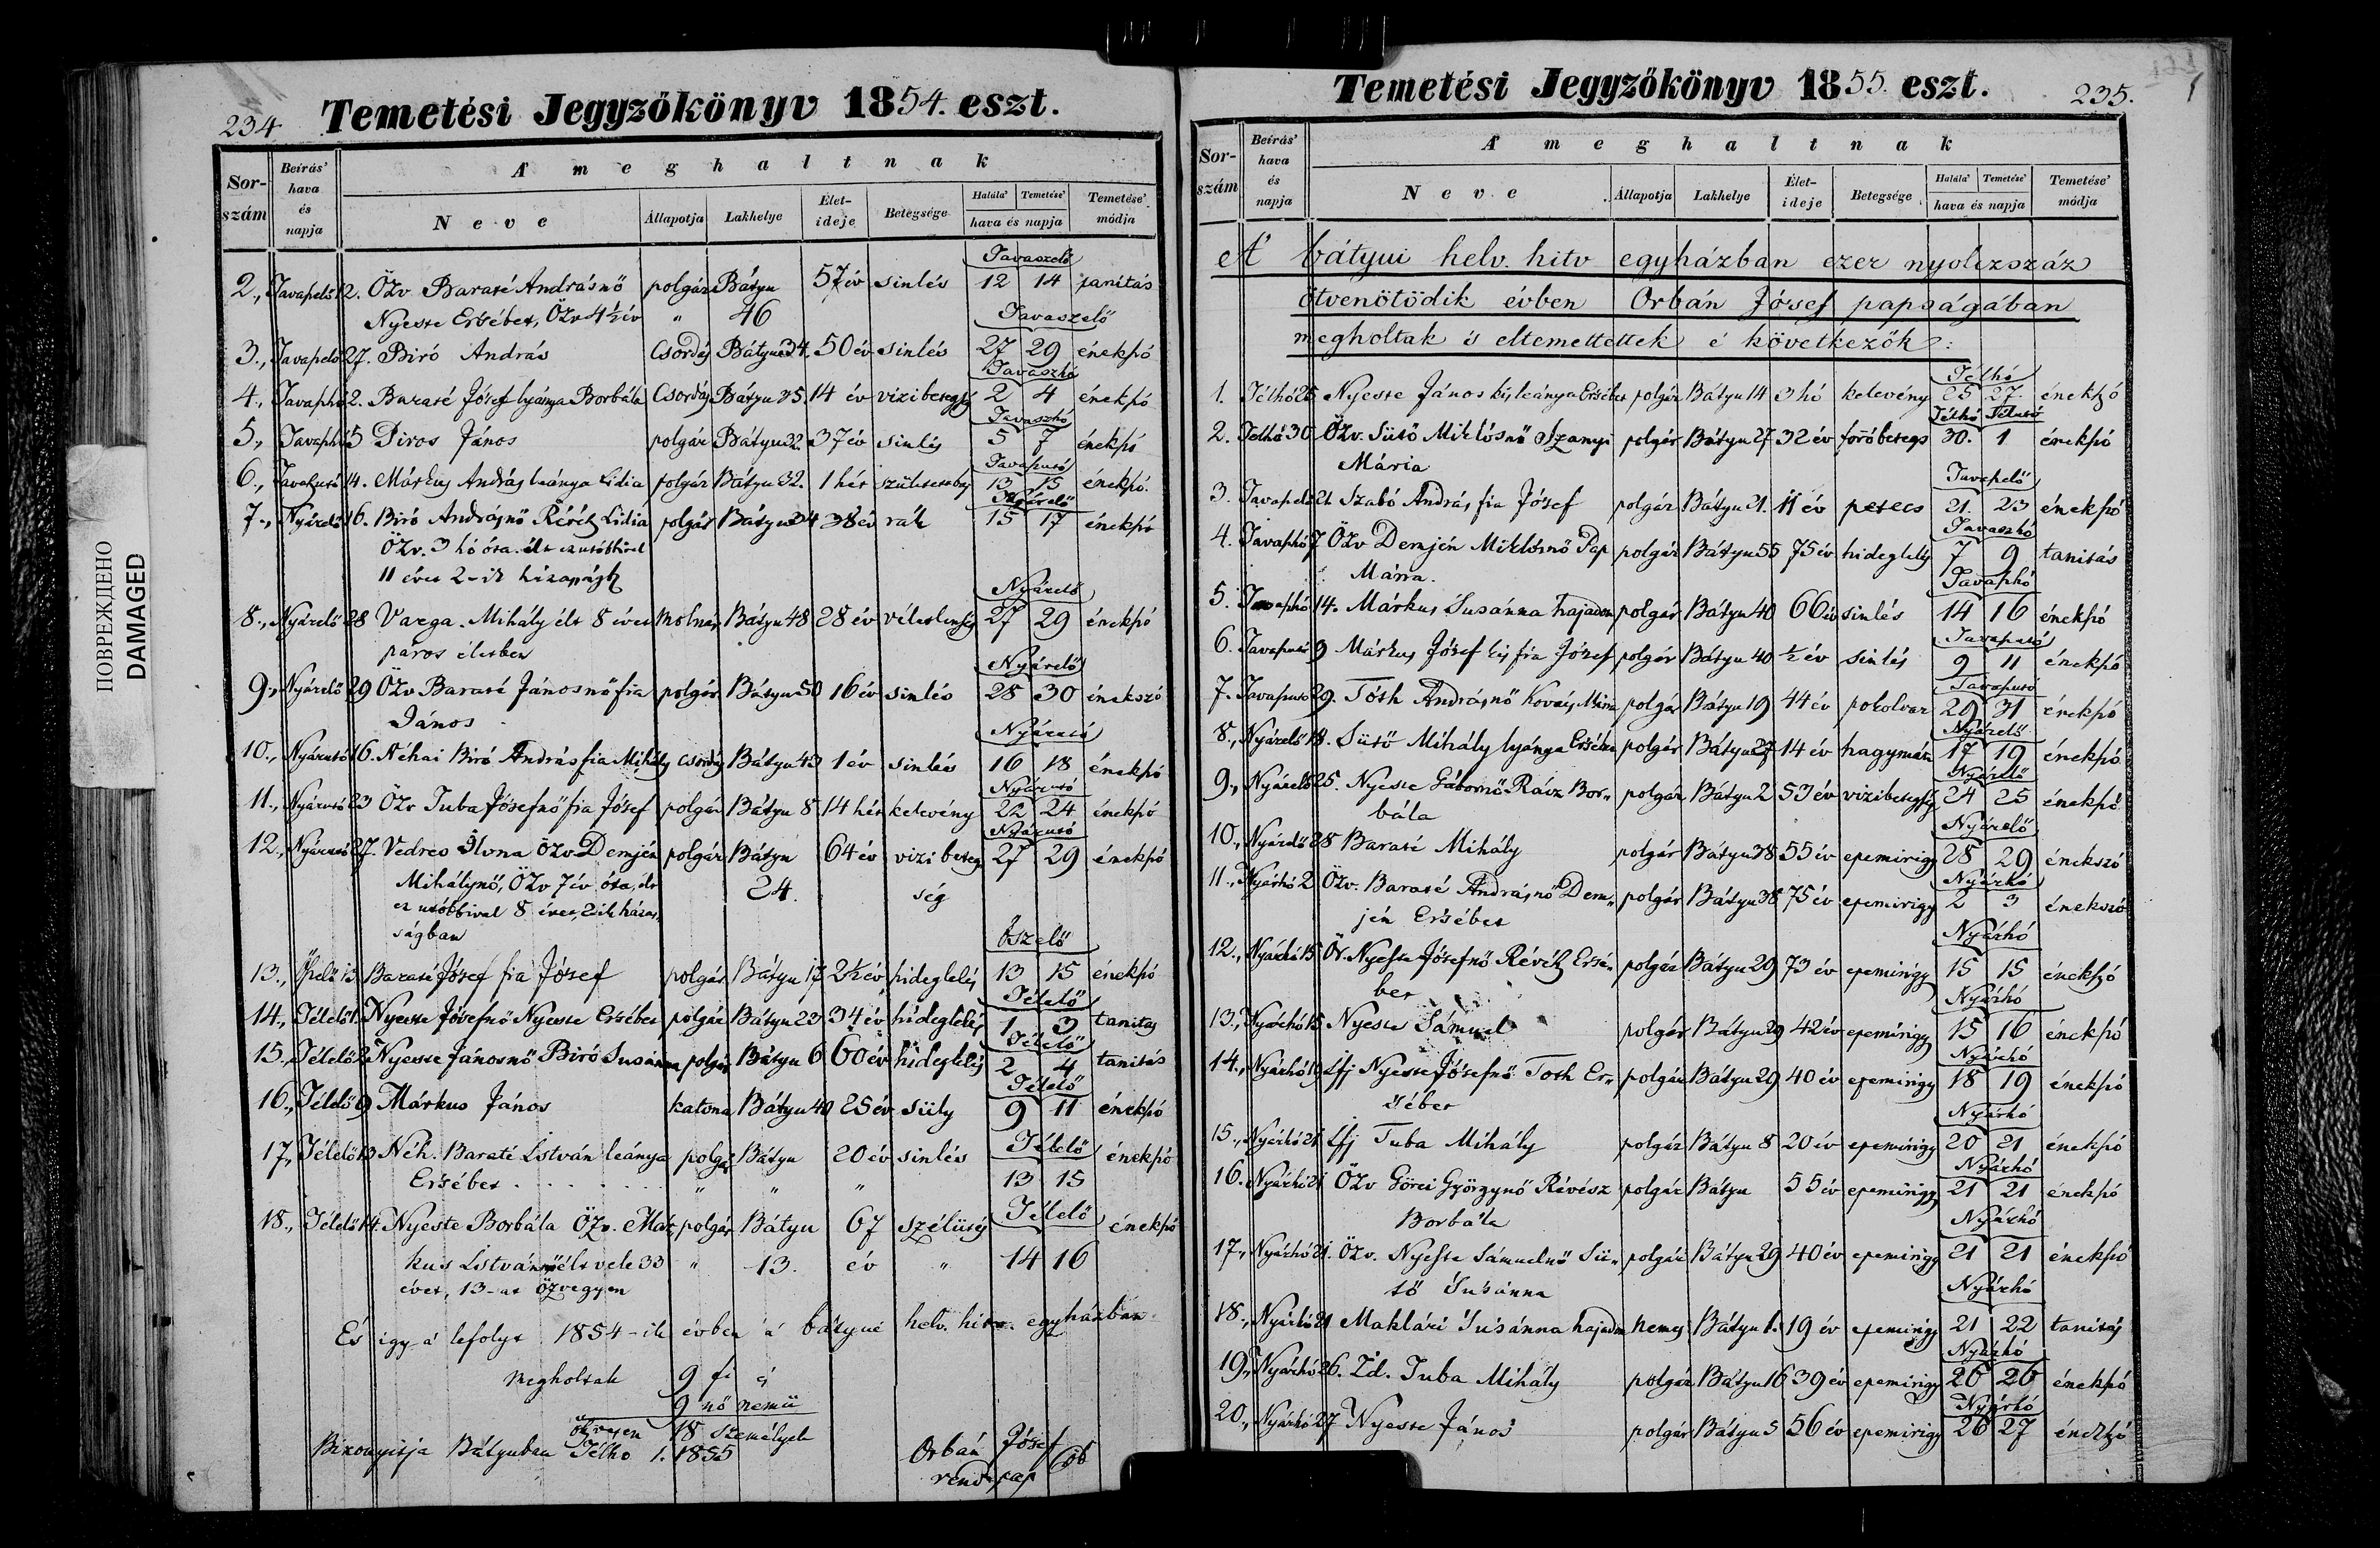 ПОВРЕЖДЕНО
DAMAGED
234
Temetési Jegyzőkönyv 1854. eszt.
Sor-szám
Beírás' hava és napja
A' meghaltnak
Neve
Állapotja
Lakhelye
Élet-ideje
Betegsége
Halála' Temetése'
hava és napja
Temetése' módja
Tavaszelő
2., Tavaszelő 12. Özv Baraté Andrásnő polgár Bátyu 57 év sinlés 12 14 tanitás
Nyeste Ersébet, Özv 4½ év " 46
Tavaszelő
3., Tavaszelő 27. Biró András Csordás Bátyu 34. 50 év sinlés 27 29 énekszó
Tavaszhó
4., Tavaszhó 2. Baraté Jósef lyánya Borbála Csordás Bátyu 35. 14 év vizibetegség 2 4 énekszó
Tavaszhó
5., Tavaszhó 5 Piros János polgár Bátyu 22. 37 év sinlés 5 7 énekszó
Tavaszutó
6., Tavaszutó 14. Márkus András leánya Lidia polgár Bátyu 32. 1 hét 13 15 énekszó.
Nyárelő
7., Nyárelő 16. Biró Andrásnő Révész Lidia polgár Bátyu 34 38 év rák 15 17 énekszó
Özv. 3 hó óta. élt ez utóbbival
11 évet 2-ik házasságb
Nyárelő
8., Nyárelő 28 Varga Mihály élt 8 évet molnár Bátyu 48 28 év véletlenség 27 29 énekszó
páros életben
Nyárelő
9., Nyárelő 29 Özv Baraté Jánosnő fia polgár Bátyu 50 16 év sinlés 28 30 énekszó
János
Nyárutó
10., Nyárutó 16. Néhai Biró András fia Mihály csordás Bátyu 43 1 év sinlés 16 18 énekszó
Nyárutó
11., Nyárutó 23 Özv Tuba Jósefnő fia Jósef polgár Bátyu 8 14 hét kelevény 22 24 énekszó
Nyárutó
12., Nyárutó 27. Vedres Ilona Özv Demjén polgár Bátyu 64 év vizi beteg 27 29 énekszó
Mihálynő, Özv 7 év óta, élt 24. ség
ez utóbbival 8 évet, 2ik házas,
ságban
Őszelő
13., Őszelő 13 Baraté Jósef fia Jósef polgár Bátyu 17 2½ év hideglelés 13 15 énekszó
Télelő
14., Télelő 1. Nyeste Jósefnő Nyeste Ersébet polgár Bátyu 23 34 év hideglelés 1 3 tanitás
Télelő
15., Télelő 2 Nyeste Jánosnő Biró Susánna polgár Bátyu 6 60 év hideglelés 2 4 tanitás
Télelő
16., Télelő 9 Márkus János katona Bátyu 40 25 év süly 9 11 énekszó
Télelő
17., Télelő 13 Néh. Baraté István leánya polgár Bátyu 20 év sinlés énekszó
Ersébet " " " 13 15
Télelő
18., Télelő 14. Nyeste Borbála Özv. Már, polgár Bátyu 67 szélütés énekszó
kus Istvánnő élt vele 33 " 13. év " 14 16
évet, 13-at özvegyen
És igy a' lefolyt 1854-ik évben a' bátyui helv. hitv. egyházban
megholtak 9 fi és
9 nő nemü
öszvesen 18 személyek
Bizonyitja Bátyuban Télhó 1. 1855 Orbán Jósef
rend. pap
235.
Temetési Jegyzőkönyv 1855. eszt.
Sor-szám
Beírás' hava és napja
A' meghaltnak
Neve
Állapotja
Lakhelye
Élet-ideje
Betegsége
Halála' Temetése'
hava és napja
Temetése' módja
A' bátyui helv. hitv egyházban ezer nyolczszáz
ötvenötödik évben Orbán Jósef papságában
megholtak és eltemettettek e' következők:
Télhó
1. Télhó 25 Nyeste János kis leánya Ersébet polgár Bátyu 14 3 hó kelevény 25 27. énekszó
Télhó Télutó
2. Télhó 30 Özv. Sütő Miklósnő Szanyi polgár Bátyu 27 32 év forróbetegs 30. 1 énekszó
Mária
Tavaszelő
3. Tavaszelő 21 Szabó András fia Jósef polgár Bátyu 21. 11 év petecs 21. 23 énekszó
Tavaszhó
4. Tavaszhó 7 Özv Demjén Miklósnő Pap polgár Bátyu 55 75 év hideglelés 7 9 tanitás
Mária.
Tavaszhó
5. Tavaszhó 14. Márkus Susánna hajadon polgár Bátyu 40 66 év sinlés 14 16 énekszó
Tavaszutó
6. Tavaszutó 9 Márkus Jósef kis fia Jósef polgár Bátyu 40 ½ év sinlés 9 11 énekszó
Tavaszutó
7. Tavaszutó 29. Tóth Andrásnő Kovács Mária polgár Bátyu 19 44 év pokolvar 29 31 énekszó
Nyárelő
8., Nyárelő 18. Sütő Mihály lyánya Ersébet polgár Bátyu 27 14 év hagymáz 17 19 énekszó
Nyárelő
9., Nyárelő 25. Nyeste Gábornő Rácz Bor" polgár Bátyu 2 53 év vizibetegség 24 25 énekszó
bála
Nyárelő
10., Nyárelő 28 Baraté Mihály polgár Bátyu 38 55 év epemirigy 28 29 énekszó
Nyárhó
11., Nyárhó 2 Özv. Baraté Andrásnő Dem" polgár Bátyu 38 75 év epemirigy 2 3 énekszó
jén Ersébet
Nyárhó
12., Nyárhó 15 Öz. Nyeste Jósefnő Révész Ersé, polgár Bátyu 29 73 év epemirigy 15 15 énekszó
bet
Nyárhó
13., Nyárhó 15 Nyeste Sámuel polgár Bátyu 29 42 év epemirigy 15 16 énekszó
Nyárhó
14., Nyárhó 19 Ifj Nyeste Jósefnő Toth Er" polgár Bátyu 29 40 év epemirigy 18 19 énekszó
sébet
Nyárhó
15., Nyárhó 21 Ifj Tuba Mihály polgár Bátyu 8 20 év epemirigy 20 21 énekszó
Nyárhó
16. Nyárhó 21 Özv Görci Györgynő Révész polgár Bátyu 55 év epemirigy 21 21 énekszó
Borbála
Nyárhó
17., Nyárhó 21. Özv. Nyeste Sámuelnő Sü- polgár Bátyu 29 40 év epemirigy 21 21 énekszó
tő Susánna
Nyárhó
18., Nyárhó 21 Maklári Susánna hajadon nemes Bátyu 1. 19 év epemirigy 21 22 tanitás
Nyárhó
19., Nyárhó 26. Id. Tuba Mihály polgár Bátyu 16 39 év epemirigy 26 26 énekszó
Nyárhó
20., Nyárhó 27 Nyeste János polgár Bátyu 5 56 év epemirigy 26 27 énekszó